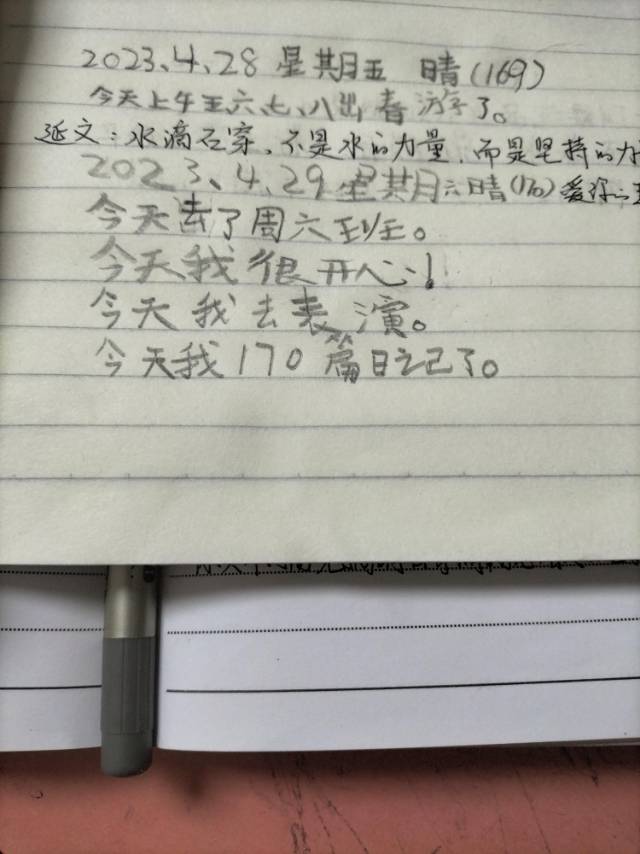 2023、4、28 星期五 晴(169)
今天上午五、六、七、八出春游了。
延文:水滴石穿、不是水的力量,而是坚持的力
2023、4、29星期六晴(170)爱你的
今天去了周六班。
今天我很开心!
今天我去表演。
今天我170篇日记了。